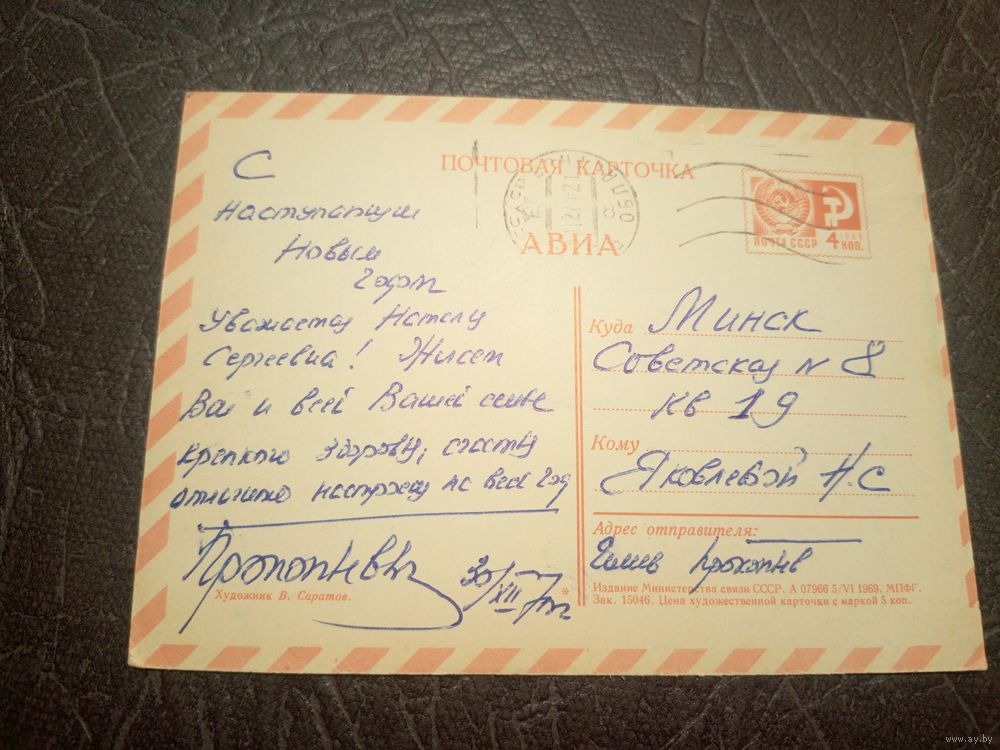 ПОЧТОВАЯ КАРТОЧКА
АВИА
ПОЧТА СССР
1966
4 КОП.
С
Наступающим
Новым
Годом
Уважаемая Наталия
Сергеевна! Желаем
Вам и всей Вашей семье
крепкого здоровья, счастья
отличного настроения на весь год
Прокопневы
30/XII-70г
Художник В. Саратов.
Куда Минск
Советская N 8
кв 19
Кому
Яковлевой Н.С
Адрес отправителя:
Издание Министерства связи СССР. А 07966 5/VI 1969. МПФГ.
Зак. 15046. Цена художественной карточки с маркой 5 коп.
www.ay.by